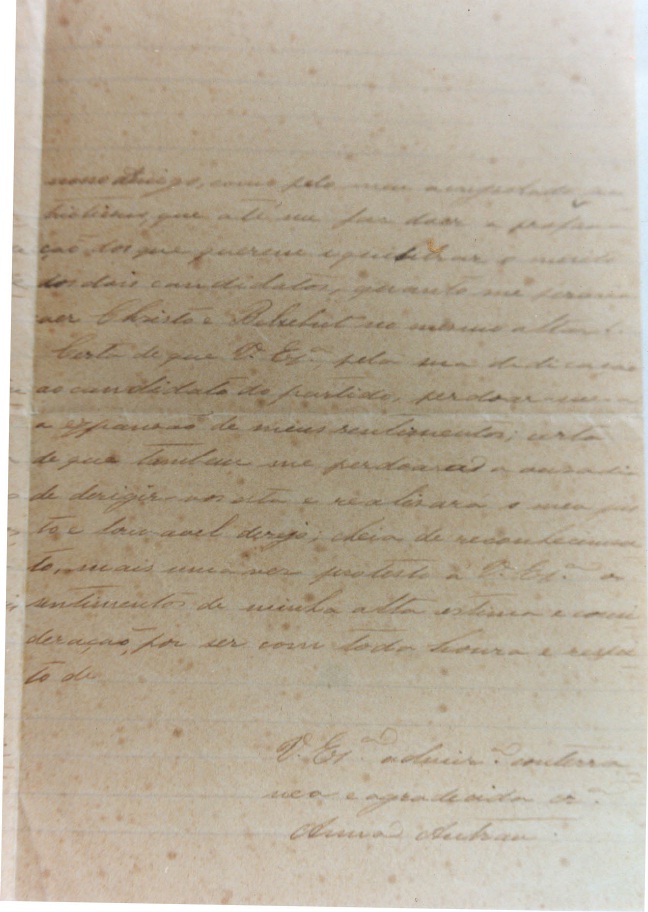 nosso amigo, como pelo meu acrysolado pa
triotismo, que até me faz doer a profana
ção dos que querem equilibrar o merito
dos dois candidatos, quanto me
ver Christo e Belzebut no mesmo altar!
Certa de que V. Exª pela sua dedicação
ao candidato do partido, perdoar-me-a
a expansão de meus sentimentos; certa
de que tambem me perdoará a ousadia
de dirigir-vos esta e realisará o meu jus
to e louvavel desejo; cheia de reconhecimen
to, mais uma vez protesto a V. Exª os
sentimentos de minha alta estima e consi
deração, por ser com toda honra e respei
to de
V. Exª admirª conterra
nea e agradecida crª
Anna Autran